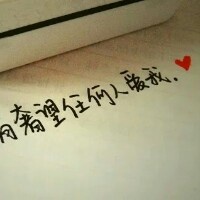 奢望任何人爱我.